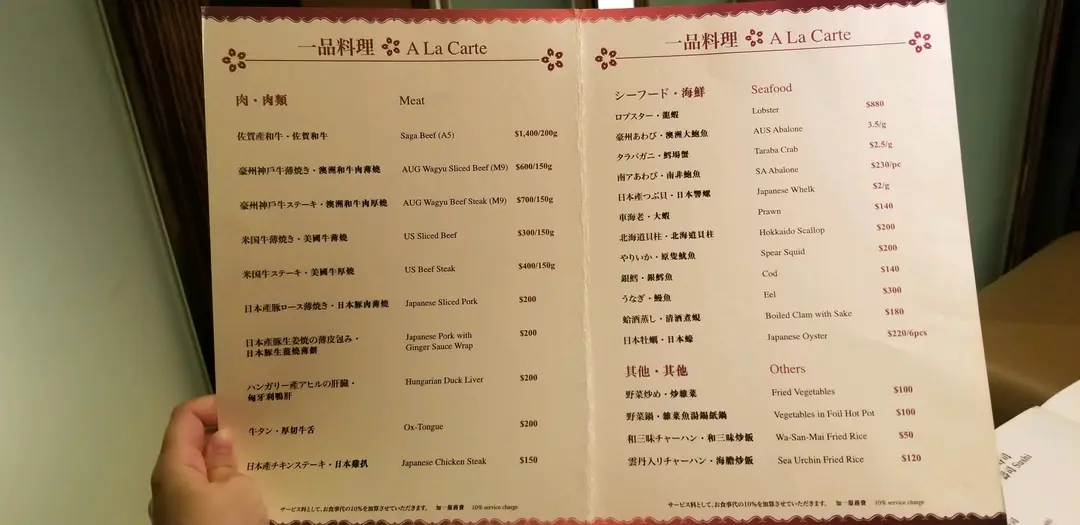 一品料理 A La Carte
肉・肉類 Meat
佐賀產和牛・佐賀和牛 Saga Beef (A5) $1,400/200g
豪州神戶牛薄焼き・澳洲和牛肉薄燒 AUG Wagyu Sliced Beef (M9) $600/150g
豪州神戶牛ステーキ・澳洲和牛肉厚燒 AUG Wagyu Beef Steak (M9) $700/150g
米国牛薄焼き・美國牛薄燒 US Sliced Beef $300/150g
米国牛ステーキ・美國牛厚燒 US Beef Steak $400/150g
日本産豚ロース薄焼き・日本豚肉薄燒 Japanese Sliced Pork $200
日本産豚生姜焼の薄皮包み・ Japanese Pork with $200
日本豚生薑燒薄餅 Ginger Sauce Wrap
ハンガリー産アヒルの肝臓・ Hungarian Duck Liver $200
匈牙利鴨肝
牛タン・厚切牛舌 Ox-Tongue $200
日本産チキンステーキ・日本雞扒 Japanese Chicken Steak $150
サービス料として、お食事代の10%を加算させていただきます。 加一服務費 10% service charge
一品料理 A La Carte
シーフード・海鮮 Seafood
ロブスター・龍蝦 Lobster $880
豪州あわび・澳洲大鮑魚 AUS Abalone 3.5/g
タラバガニ・鱈場蟹 Taraba Crab $2.5/g
南アあわび・南非鮑魚 SA Abalone $230/pc
日本産つぶ貝・日本響螺 Japanese Whelk $2/g
車海老・大蝦 Prawn $140
北海道貝柱・北海道貝柱 Hokkaido Scallop $200
やりいか・原隻魷魚 Spear Squid $200
銀鱈・銀鱈魚 Cod $140
うなぎ・鰻魚 Eel $300
蛤酒蒸し・清酒煮蜆 Boiled Clam with Sake $180
日本牡蠣・日本蠔 Japanese Oyster $220/6pcs
其他・其他 Others
野菜炒め・炒雜菜 Fried Vegetables $100
野菜鍋・雜菜魚湯錫紙鍋 Vegetables in Foil Hot Pot $100
和三味チャーハン・和三味炒飯 Wa-San-Mai Fried Rice $50
雲丹入りチャーハン・海膽炒飯 Sea Urchin Fried Rice $120
サービス料として、お食事代の10%を加算させていただきます。 加一服務費 10% service charge
Sushi